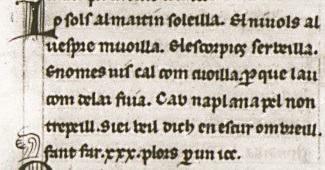 Lo sols al martin soleilla. El niuols al
uespre muoilla. El escorpiçe seruilla.
E nomes uis cal com cuoilla. ꝑ que lau
com telai fiua. Cau naplana pel non
trepeill. Si ei veil dich en escur ombreul.
fant far .xxx. plors ꝑ un icc.